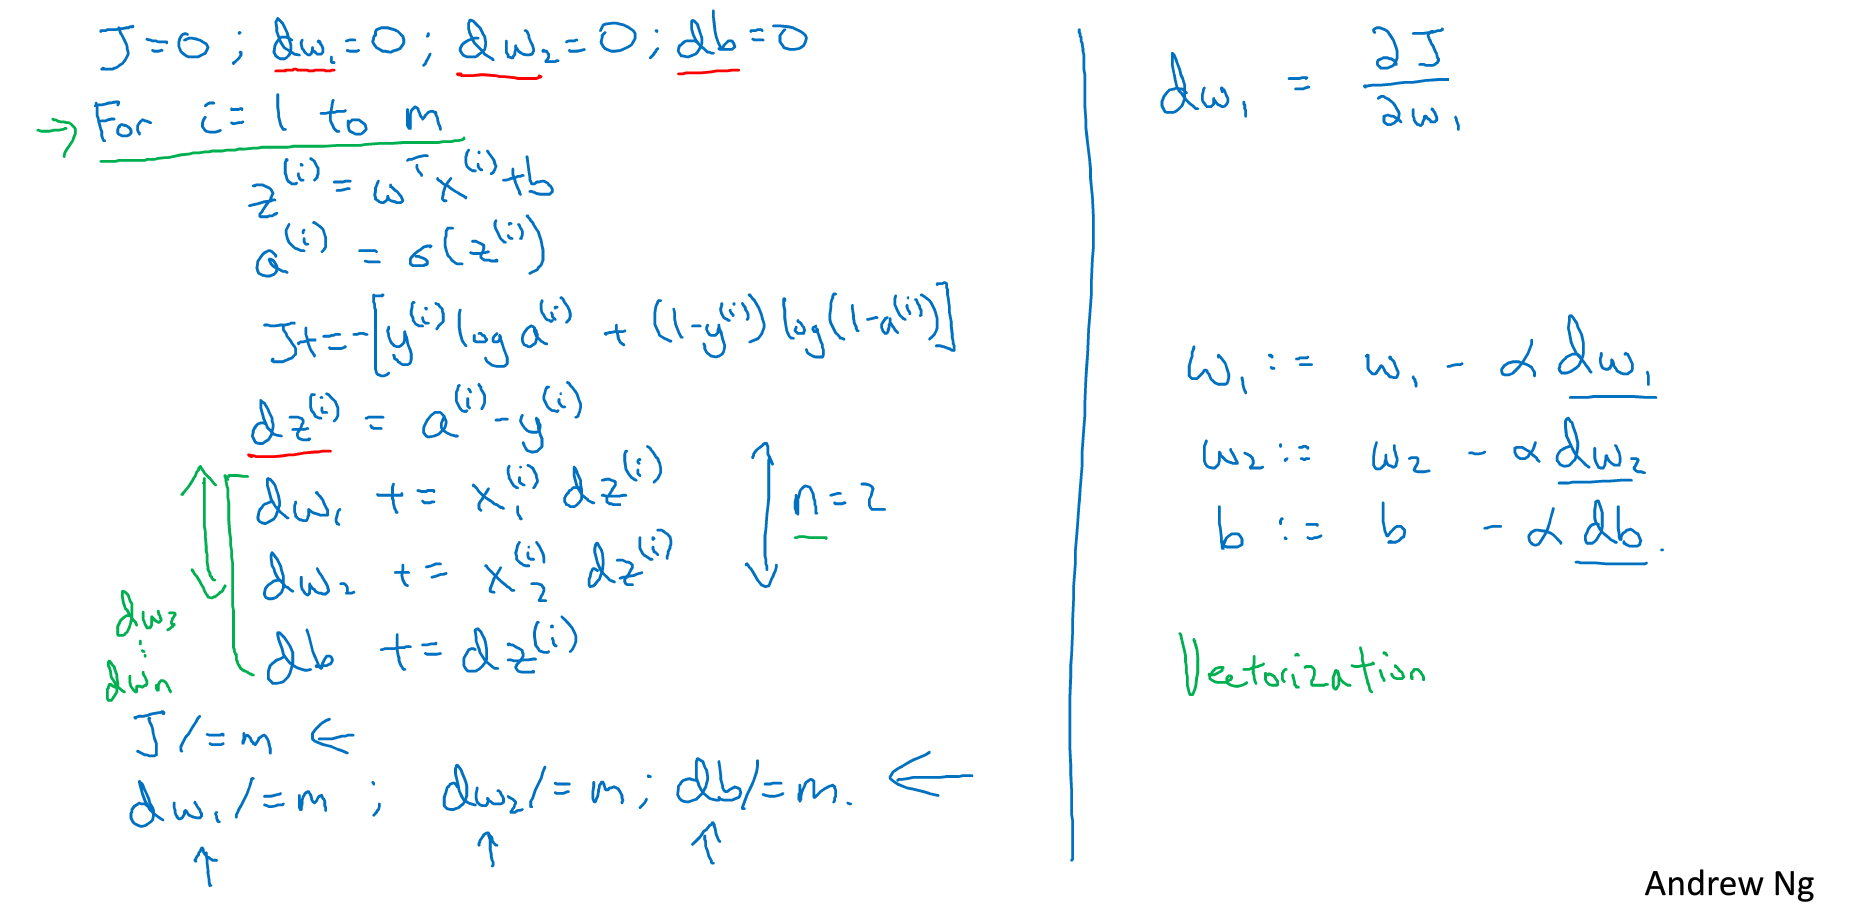 J=0; dw₁=0; dw₂=0; db=0
→ For i=1 to m
z⁽ⁱ⁾ = wᵀx⁽ⁱ⁾+b
a⁽ⁱ⁾ = σ(z⁽ⁱ⁾)
J+=-[y⁽ⁱ⁾ log a⁽ⁱ⁾ + (1-y⁽ⁱ⁾) log(1-a⁽ⁱ⁾)]
dz⁽ⁱ⁾ = a⁽ⁱ⁾-y⁽ⁱ⁾
dw₁ += x₁⁽ⁱ⁾ dz⁽ⁱ⁾
dw₂ += x₂⁽ⁱ⁾ dz⁽ⁱ⁾
n=2
db += dz⁽ⁱ⁾
dw₃
⋮
dwₙ
J/=m ←
dw₁/=m; dw₂/=m; db/=m. ←
↑ ↑ ↑
dw₁ = ∂J/∂w₁
w₁ := w₁ - α dw₁
w₂ := w₂ - α dw₂
b := b - α db.
Vectorization
Andrew Ng